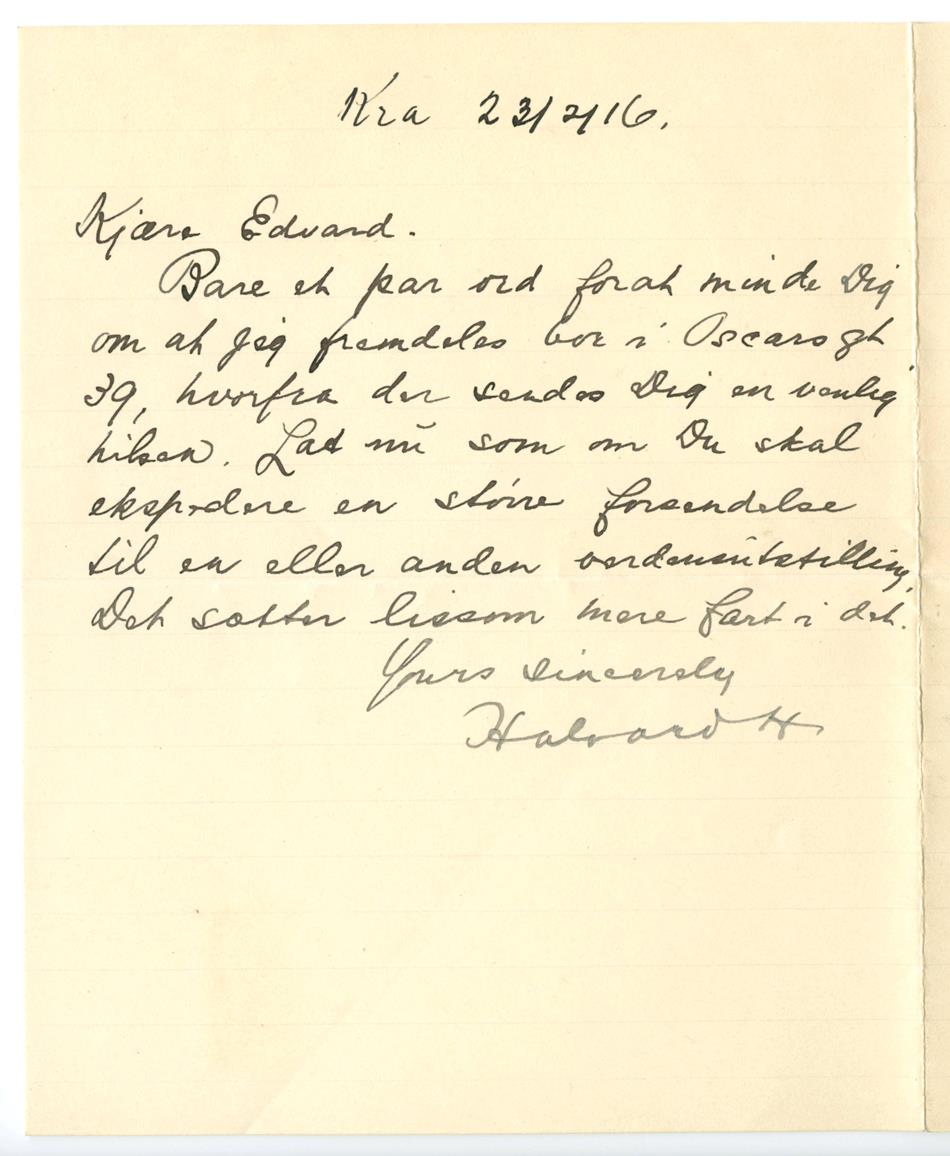 Kra 23/2/16.
Kjære Edvard.
Bare et par ord forat minde Dig
om at jeg fremdeles bor i Oscarsgt
39, hvorfra der sendes Dig en venlig
hilsen. Lad nu som om Du skal
ekspedere en större forsendelse
til en eller anden verdensutstilling,
Det sætter lissom mere fart i det.
Yours sincerely
Halvard H